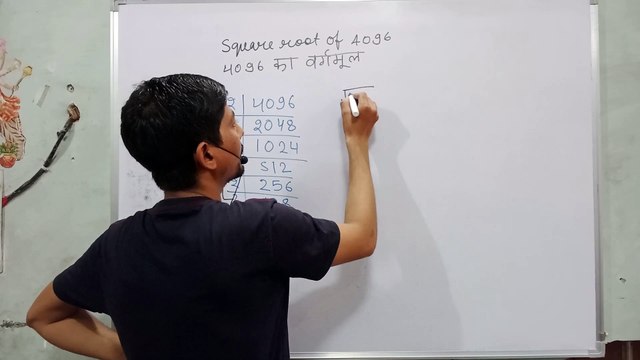 Square root of 4096
4096 का वर्गमूल
2 4096
2048
1024
512
2 256
8